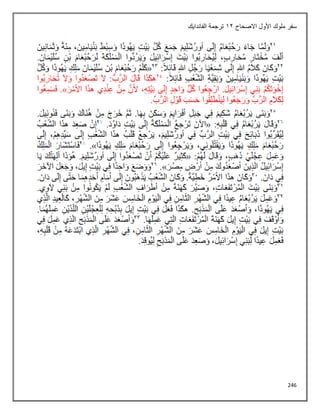 سفر ملوك أول الاصحاح ١٢ ترجمة الفاندايك
٢١وَلَمَّا جَاءَ رَحُبْعَامُ إِلَى أُورُشَلِيمَ جَمَعَ كُلَّ بَيْتِ يَهُوذَا وَسِبْطَ بِنْيَامِينَ، مِئَةً وَثَمَانِينَ
أَلْفَ مُخْتَارٍ مُحَارِبٍ، لِيُحَارِبُوا بَيْتَ إِسْرَائِيلَ وَيَرُدُّوا الْمَمْلَكَةَ لِرَحُبْعَامَ بْنِ سُلَيْمَانَ.
٢٢وَكَانَ كَلاَمُ اللهِ إِلَى شَمْعِيَا رَجُلِ اللهِ قَائِلاً: ٢٣«كَلِّمْ رَحُبْعَامَ بْنَ سُلَيْمَانَ مَلِكَ يَهُوذَا وَكُلَّ
بَيْتِ يَهُوذَا وَبِنْيَامِينَ وَبَقِيَّةَ الشَّعْبِ قَائِلاً: ٢٤هكَذَا قَالَ الرَّبُّ: لاَ تَصْعَدُوا وَلاَ تُحَارِبُوا
إِخْوَتَكُمْ بَنِي إِسْرَائِيلَ. ارْجِعُوا كُلُّ وَاحِدٍ إِلَى بَيْتِهِ، لأَنَّ مِنْ عِنْدِي هذَا الأَمْرَ». فَسَمِعُوا
لِكَلاَمِ الرَّبِّ وَرَجَعُوا لِيَنْطَلِقُوا حَسَبَ قَوْلِ الرَّبِّ.
٢٥وَبَنَى يَرُبْعَامُ شَكِيمَ فِي جَبَلِ أَفْرَايِمَ وَسَكَنَ بِهَا. ثُمَّ خَرَجَ مِنْ هُنَاكَ وَبَنَى فَنُوئِيلَ.
٢٦وَقَالَ يَرُبْعَامُ فِي قَلْبِهِ: «الآنَ تَرْجِعُ الْمَمْلَكَةُ إِلَى بَيْتِ دَاوُدَ. ٢٧إِنْ صَعِدَ هذَا الشَّعْبُ
لِيُقَرِّبُوا ذَبَائِحَ فِي بَيْتِ الرَّبِّ فِي أُورُشَلِيمَ، يَرْجِعْ قَلْبُ هذَا الشَّعْبِ إِلَى سَيِّدِهِمْ، إِلَى
رَحُبْعَامَ مَلِكِ يَهُوذَا وَيَقْتُلُونِي، وَيَرْجِعُوا إِلَى رَحُبْعَامَ مَلِكِ يَهُوذَا». ٢٨فَاسْتَشَارَ الْمَلِكُ
وَعَمِلَ عِجْلَيْ ذَهَبٍ، وَقَالَ لَهُمْ: «كَثِيرٌ عَلَيْكُمْ أَنْ تَصْعَدُوا إِلَى أُورُشَلِيمَ. هُوَذَا آلِهَتُكَ يَا
إِسْرَائِيلُ الَّذِينَ أَصْعَدُوكَ مِنْ أَرْضِ مِصْرَ». ٢٩وَوَضَعَ وَاحِدًا فِي بَيْتِ إِيلَ، وَجَعَلَ الآخَرَ
فِي دَانَ. ٣٠وَكَانَ هذَا الأَمْرُ خَطِيَّةً. وَكَانَ الشَّعْبُ يَذْهَبُونَ إِلَى أَمَامِ أَحَدِهِمَا حَتَّى إِلَى دَانَ.
٣١وَبَنَى بَيْتَ الْمُرْتَفَعَاتِ، وَصَيَّرَ كَهَنَةً مِنْ أَطْرَافِ الشَّعْبِ لَمْ يَكُونُوا مِنْ بَنِي لاَوِي.
٣٢وَعَمِلَ يَرُبْعَامُ عِيدًا فِي الشَّهْرِ الثَّامِنِ فِي الْيَوْمِ الْخَامِسَ عَشَرَ مِنَ الشَّهْرِ، كَالْعِيدِ الَّذِي
فِي يَهُوذَا، وَأَصْعَدَ عَلَى الْمَذْبَحِ. هكَذَا فَعَلَ فِي بَيْتِ إِيلَ بِذَبْحِهِ لِلْعِجْلَيْنِ اللَّذَيْنِ عَمِلَهُمَا.
وَأَوْقَفَ فِي بَيْتِ إِيلَ كَهَنَةَ الْمُرْتَفَعَاتِ الَّتِي عَمِلَهَا. ٣٣وَأَصْعَدَ عَلَى الْمَذْبَحِ الَّذِي عَمِلَ فِي
بَيْتِ إِيلَ فِي الْيَوْمِ الْخَامِسَ عَشَرَ مِنَ الشَّهْرِ الثَّامِنِ، فِي الشَّهْرِ الَّذِي ابْتَدَعَهُ مِنْ قَلْبِهِ،
فَعَمِلَ عِيدًا لِبَنِي إِسْرَائِيلَ، وَصَعِدَ عَلَى الْمَذْبَحِ لِيُوقِدَ.
246